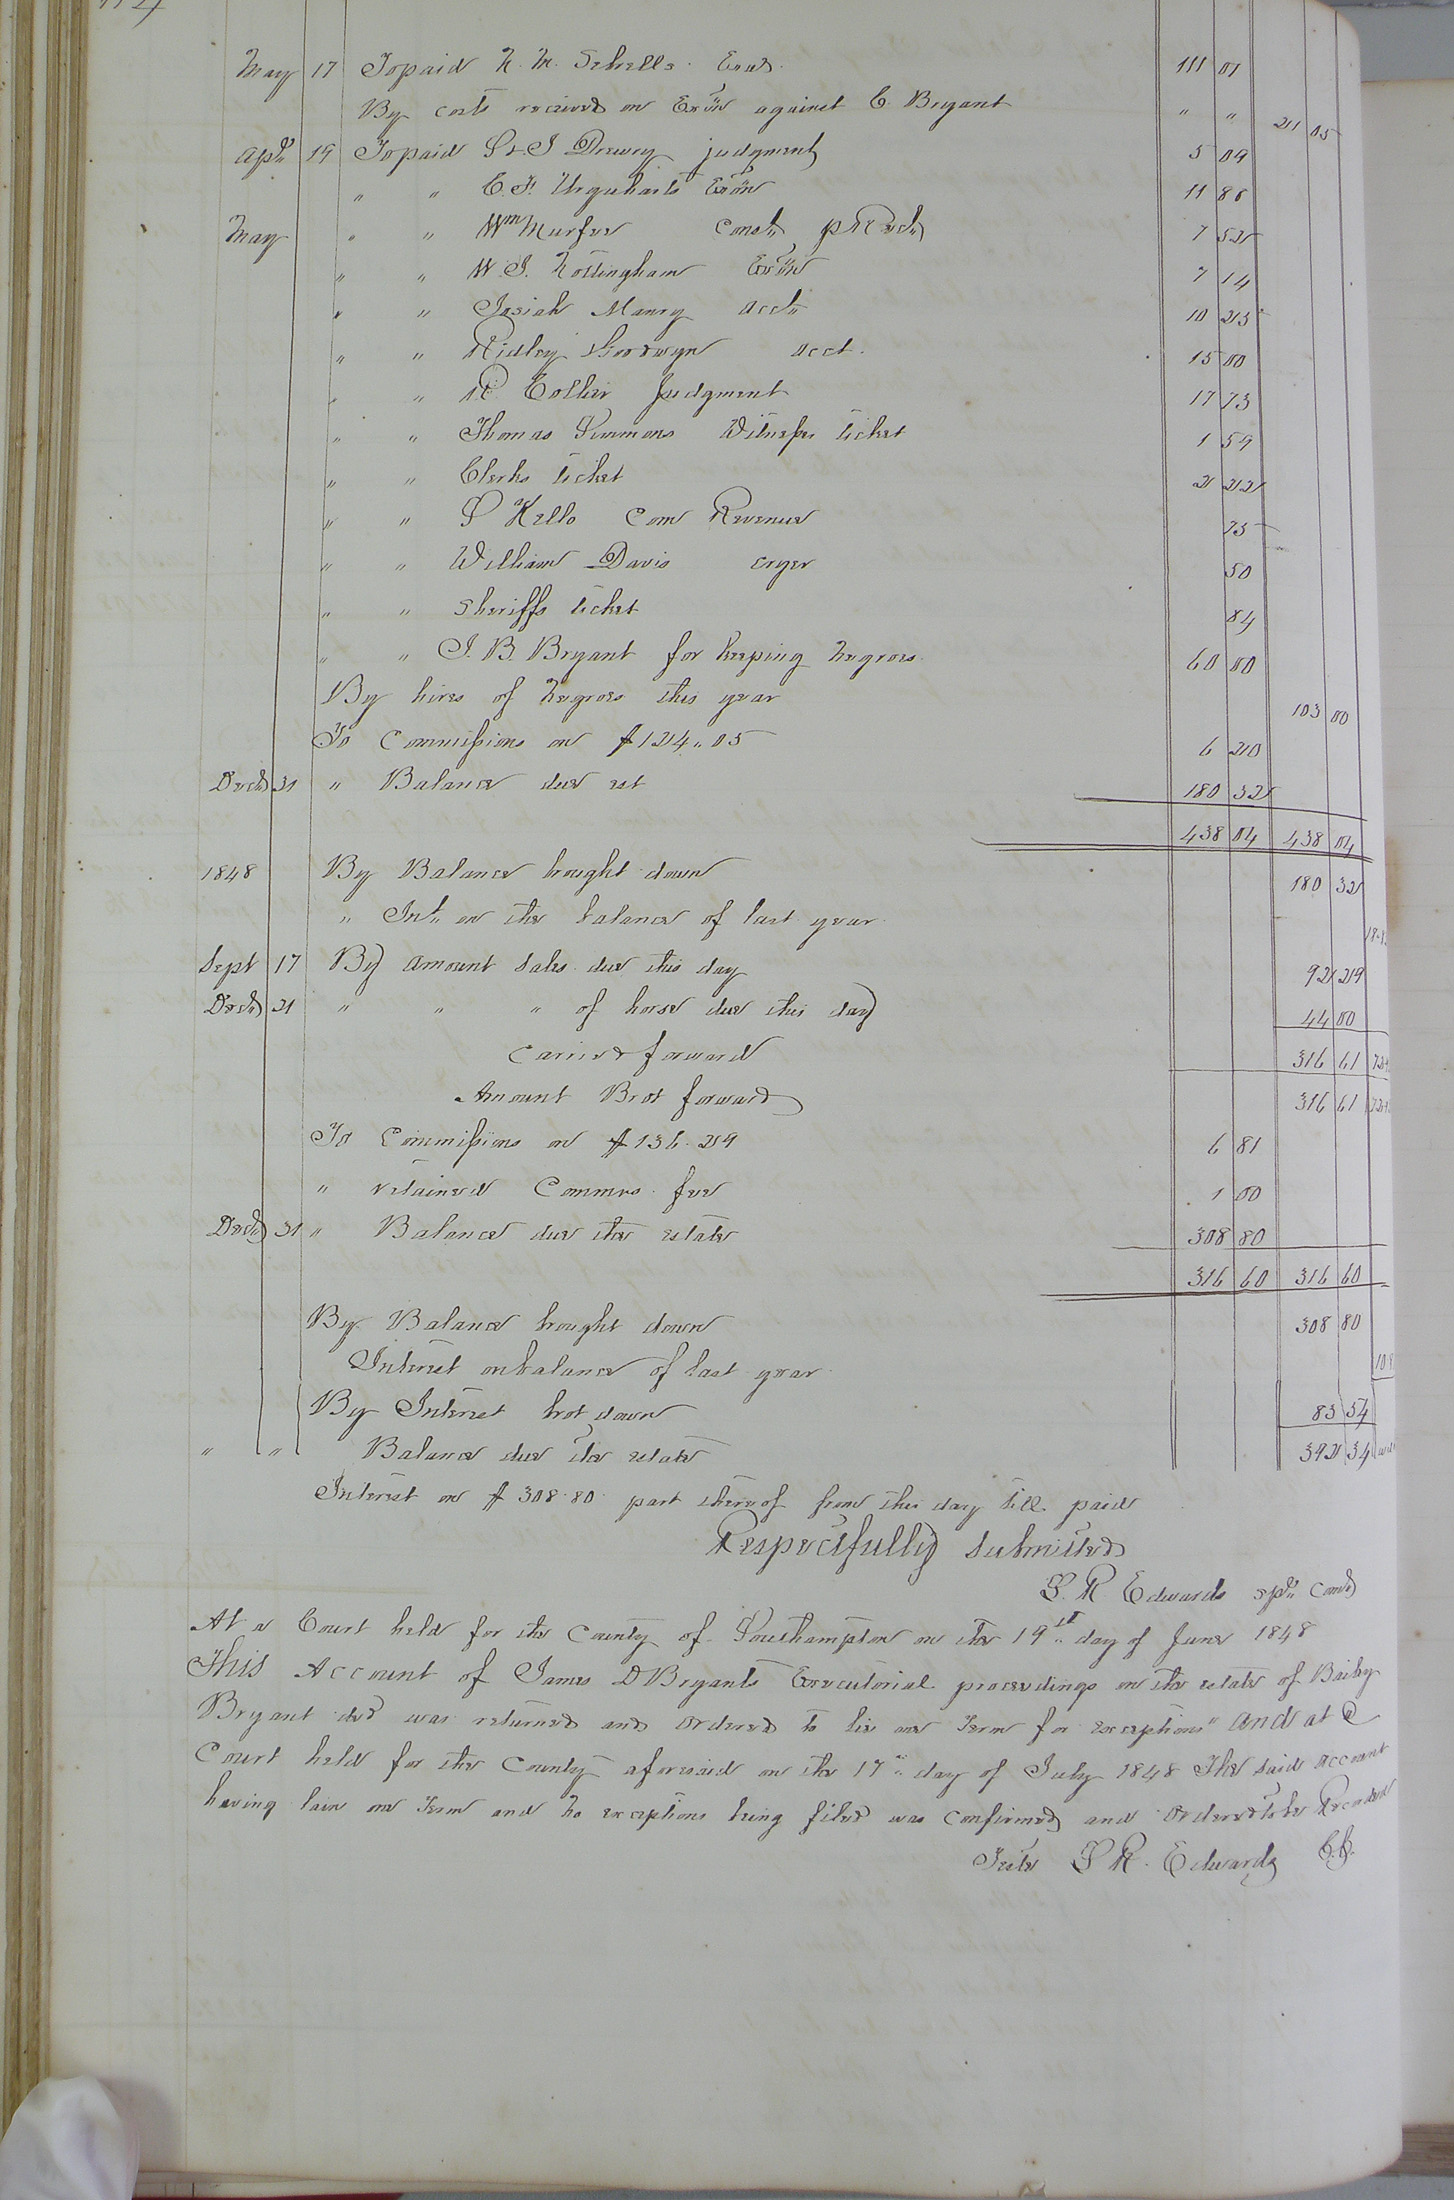 May 17 To paid N. M. Sebrells Exors 111 01
By costs received on Exõn against C. Bryant " " 21 05
Apl 19 To paid S & J Drewry judgment 5 09
" " E. F. Urquharts Exõn 11 86
May " " Wm Murfee Const. pr Rect 7 52
" " W. J. Nottingham Exõn 7 14
" " Josiah Maury acct 10 23
" " Ridley Goodwyn acct. 15 00
" " R Collier Judgment 17 73
" " Thomas Simmons Witness ticket 1 59
" " Clerks ticket 2 22
" " S Kello Com Revenue 75
" " William Davis cryer 50
" " Sheriffs ticket 84
" " J. B. Bryant for keeping negroes 60 00
By hires of negroes this year 103 00
To Commissions on $124.05 6 20
Decr 31 " Balance due est 180 32
438 04 438 04
1848 By Balance brought down 180 32
" Int. on the balance of last year
Sept 17 By amount sales due this day 92 29
Decr 21 " " " of horse due this day 44 00
Carried forward 316 61
Amount Brot forward 316 61
To Commissions on $136.29 6 81
" retained Commrs. fee 1 00
Decr 31 " Balance due the estate 308 80
316 60 316 60
By Balance brought down 308 80
Interest on balance of last year
By Interest brot down 83 54
" " Balance due the estate 392 34
Interest on $308.80 part thereof from this day till paid
Respectfully Submitted
L. R Edwards spl. Comr
At a Court held for the County of Southampton on the 19th day of June 1848
This Account of James D Bryants Executorial proceedings on the estate of Baily
Bryant decd was returned and ordered to lie one Term for exceptions" and at a
Court held for the County aforesaid on the 17th day of July 1848 The said account
having lain one Term and no exceptions being filed was confirmed and ordered to be Recorded
Teste L R. Edwards C.C.